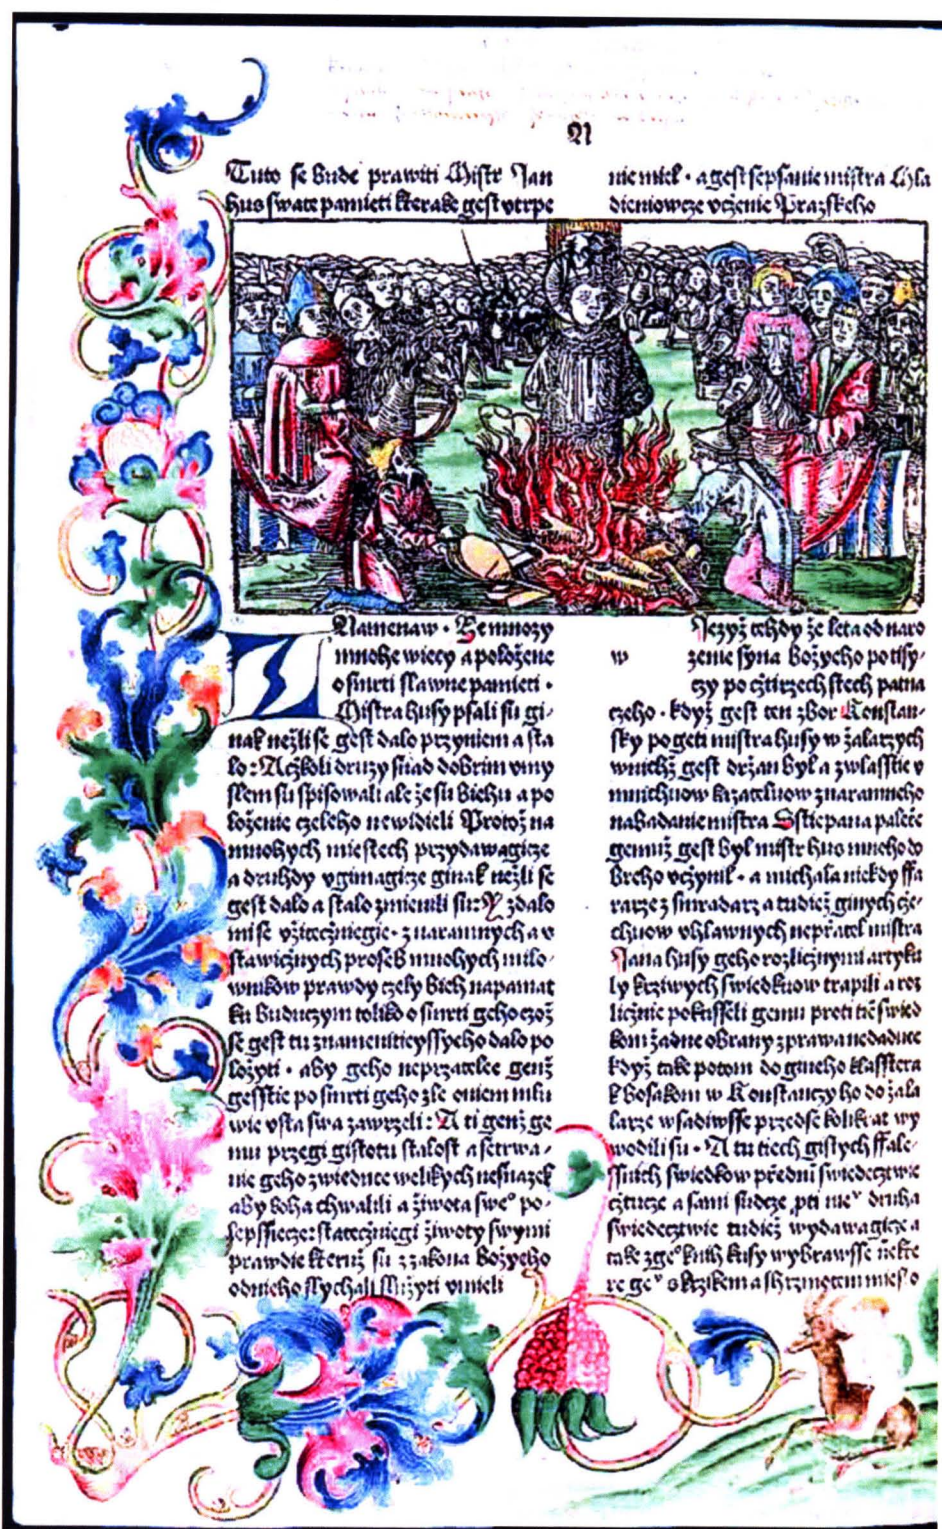 A
Tuto se bude prawiti Mistr Jan
Hus swate pamieti kterak gest vtrpe
nie miel · a gest sepsanie mistra Mla
dieniowcze vczenie Prazskeho
Namenaw · Ze mnozy
mnohe wiecy a położene
o smrti slawne pamieti ·
Mistra husy psali su gi-
nak nežli se gest dalo przyniem a sta
lo: Aczkoli druzy snad dobrim vmy
slem su spisowali ale že su bichu a po
loženie czeleho newidieli Protož na
mnohych miestech przydawagicze
a druhdy vgimagicze ginak nežli se
gest dalo a stalo zmienili su: Y zdalo
mi se vžitecžniegie · z naramnych a v
stawicžnych proseb mnohych milo-
wnikow prawdy czely bich napamat
ku buduczym toliko o smrti geho czož
se gest tu znamenitieyssycho dalo po
ložyti · aby geho neprzatelee genž
gesstie po smrti geho zle oniem mlu
wie vsta swa zawrzeli: A ti genž ge
mu przegi gistotu stalost a setrwa-
nie geho zwieduce welikych nesnazek
aby boha chwalili a žiwota sweº po-
lepssiecze: statecžniegi žiwoty swymi
prawdie kteruž su z zakona božycho
odnieho slychali služyti vmieli
Jezyž tehdy že leta od naro
w zenie syna božycho po tisy-
czy po cžtirzech stech patna
czeho · když gest ten zbor Konstan-
sky pogeti mistra husy w žalarzych
wnichž gest držan byl a zwlasstie v
mnichuow krzatluow z naramneho
nabadanie mistra Sstiepana paleče
gemuž gest byl mistr hus mnoho do
breho vcžynil · a michala niekdy ffa
rarze z smradarz a tudiež ginych cže-
chuow vhlawnych nepřatel mistra
Jana husy geho rozlicžnymi artyku
ly krziwych swiedkuow trapili a roz
licžnie pokusseli gemu proti tiē swied
kom žadne obrany z prawa nedaduce
když take potom do gineho klasstera
k bosakom w Konstanczy ho do žala
larze wsadiwsse przedse kolikrat wy
wodili su · A tu tiech gistych ffale-
ssnich swiedkow předni swiedecztwie
cžtucze a sami sudcze pti neº druha
swiedecztwie tudiež wydawagicze a
take z geº knih kusy wybrawsse niekte
re geº s krzikem a s hrzmotem mieso